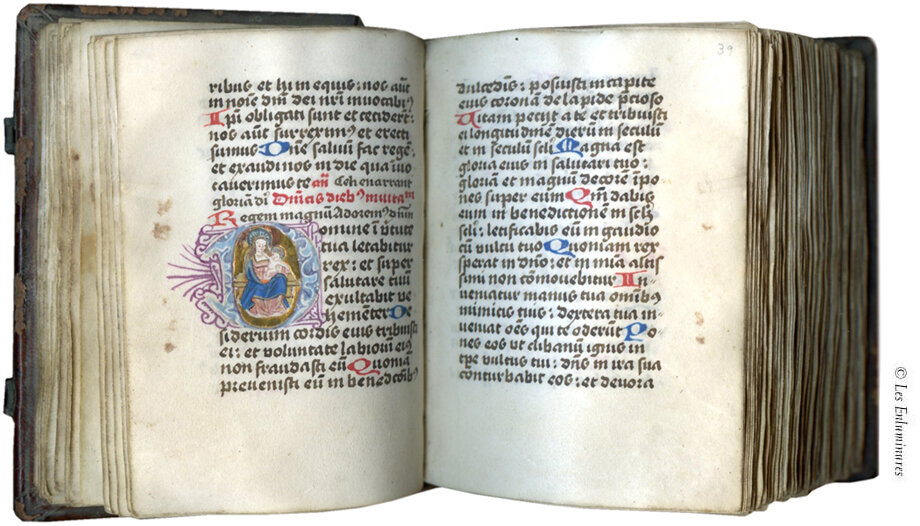 ribus et hii in equis: nos aut̄
in noīe dn̄i dei nr̄i invocabiꝰ
Ipi obligati sunt et cederēt:
nos aut̄ surreximꝰ et erecti
sumus Dn̄e salvū fac regē:
et exaudi nos in die qua ivo
caverimus te an̄ Celi enarrant
gloriā di Dn̄icis diebꝰ
Regem magnū Adoremꝰ dn̄m
Domine in v̄tute
tua letabitur
rex: et super
salutare tuū
exultabit ve
hementer De
siderium cordis eius tribuisti
ei: et voluntate labiorū eiꝰ
non fraudasti eū Quoniā
prevenisti eū in benedcōibꝰ
39
dulcedīs: posuisti in capite
eius coronā de lapide p̄cioso
Vitam petijt a te et tribuisti
ei longitudinē dierū in seculū
et in seculū scli Magna est
gloria eius in salutari tuo:
gloriā et magnū decorē īpo
nes super eum Qm̄ dabis
eum in benedictionem in sclm̄
scli: letificabis eū in gaudio
cū vultu tuo Quonium rex
sperat in dn̄o: et in mīa altis
simi non cōmovebitur In
veniatur manus tua omībꝰ
inimicis tuis: dextera tua in
veniat oēs qui te oderūt Po
nes eos ut clibanū ignis in
tp̄e vultus tui: dn̄s in ira sua
conturbabit eos: et devora
© Les Enluminures